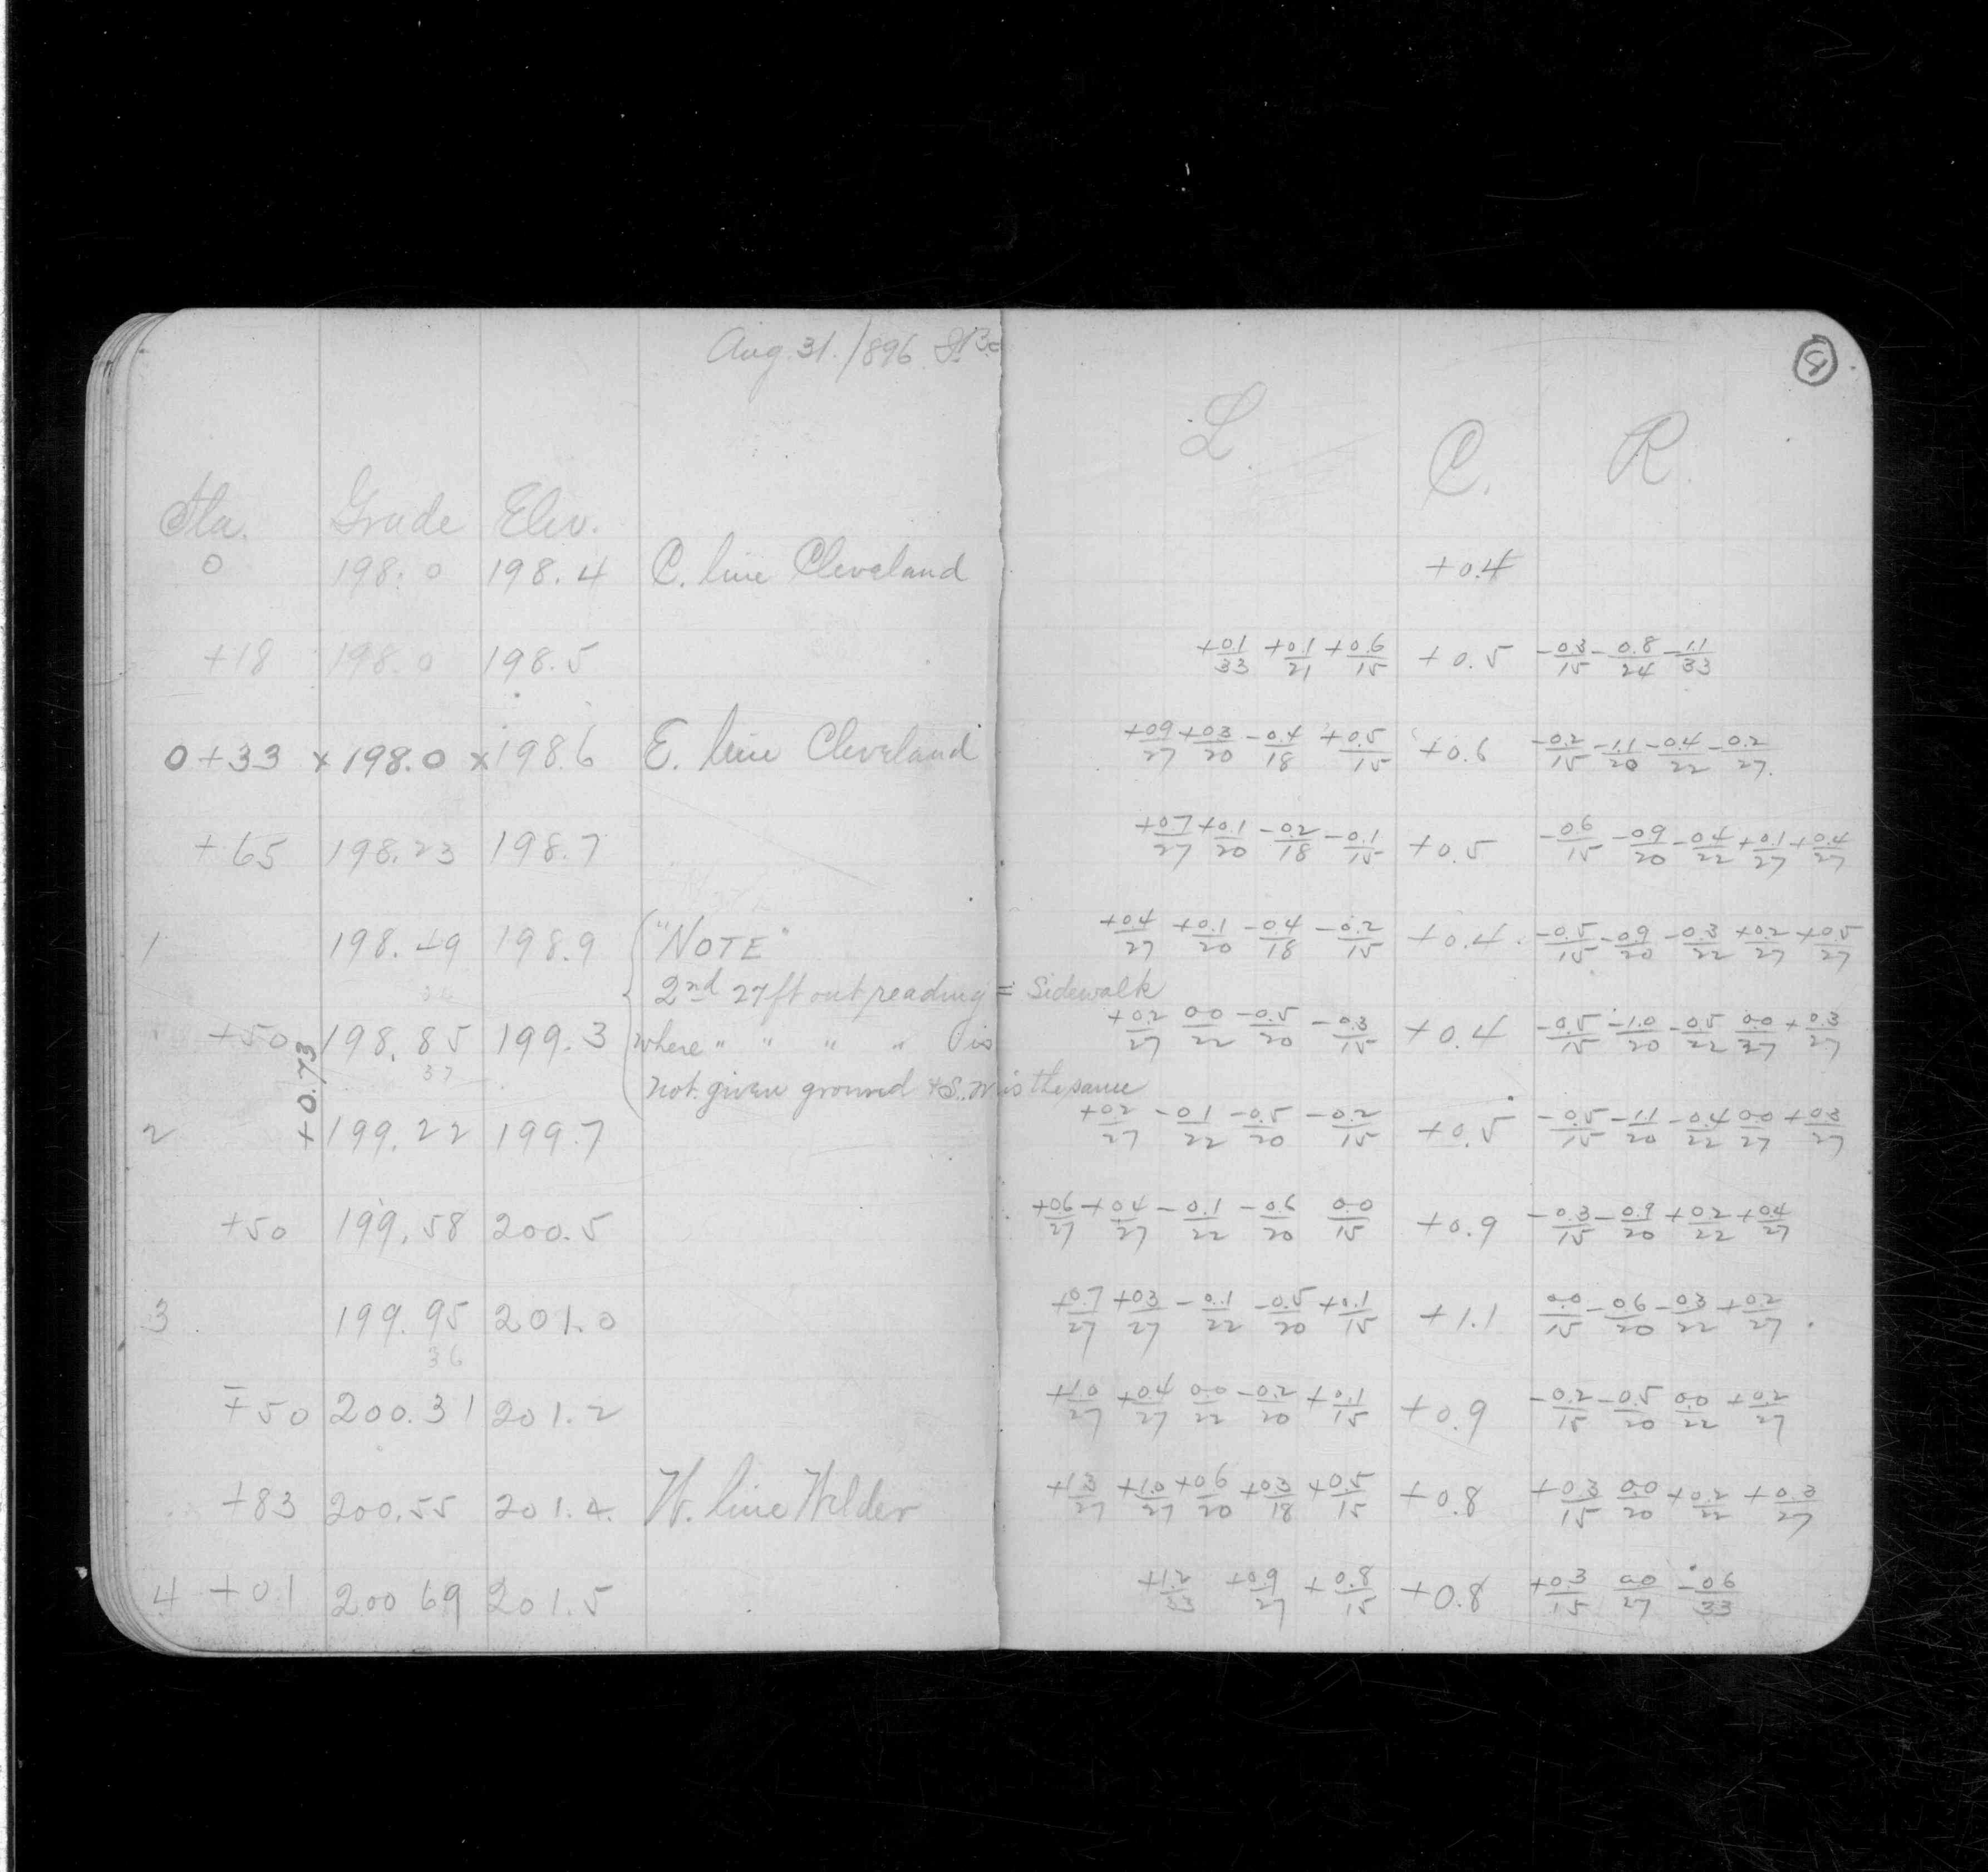 Aug. 31. /896
5
L. C. R.
Sta. Grade Elev.
0 198.0 198.4 C. line Cleveland +0.4
+18 198.0 198.5 +0.1/33 +0.1/21 +0.6/15 +0.5 -0.3/15 -0.8/24 -1.1/33
0+33 x 198.0 x 198.6 E. line Cleveland +0.9/27 +0.3/20 -0.4/18 +0.5/15 +0.6 -0.2/15 -1.1/20 -0.4/22 -0.2/27.
+65 198.23 198.7 +0.7/27 +0.1/20 -0.2/18 -0.1/15 +0.5 -0.6/15 -0.9/20 -0.4/22 +0.1/27 +0.4/27
1 198.49 198.9 "NOTE" +0.4/27 +0.1/20 -0.4/18 -0.2/15 +0.4 -0.5/15 -0.9/20 -0.3/22 +0.2/27 +0.5/27
2nd 27 ft out reading = Sidewalk
+50 198.85 199.3 where " " " " is +0.2/27 0.0/22 -0.5/20 -0.3/15 +0.4 -0.5/15 -1.0/20 -0.5/22 0.0/27 +0.3/27
37
+0.73
not given ground + S.W is the same
2 199.22 199.7 +0.2/27 -0.1/22 -0.5/20 -0.2/15 +0.5 -0.5/15 -1.1/20 -0.4/22 0.0/27 +0.3/27
+50 199.58 200.5 +0.6/27 +0.4/27 -0.1/22 -0.6/20 0.0/15 +0.9 -0.3/15 -0.9/20 +0.2/22 +0.4/27
3 199.95 201.0 +0.7/27 +0.3/27 -0.1/22 -0.5/20 +0.1/15 +1.1 0.0/15 -0.6/20 -0.3/22 +0.2/27.
36
+50 200.31 201.2 +1.0/27 +0.4/27 0.0/22 -0.2/20 +0.1/15 +0.9 -0.2/15 -0.5/20 0.0/22 +0.2/27
+83 200.55 201.4. W. line Wilder +1.3/27 +1.0/27 +0.6/20 +0.3/18 +0.5/15 +0.8 +0.3/15 0.0/20 +0.2/22 +0.3/27
4 +01 200 69 201.5 +1.2/33 +0.9/27 +0.8/15 +0.8 +0.3/15 0.0/27 -0.6/33